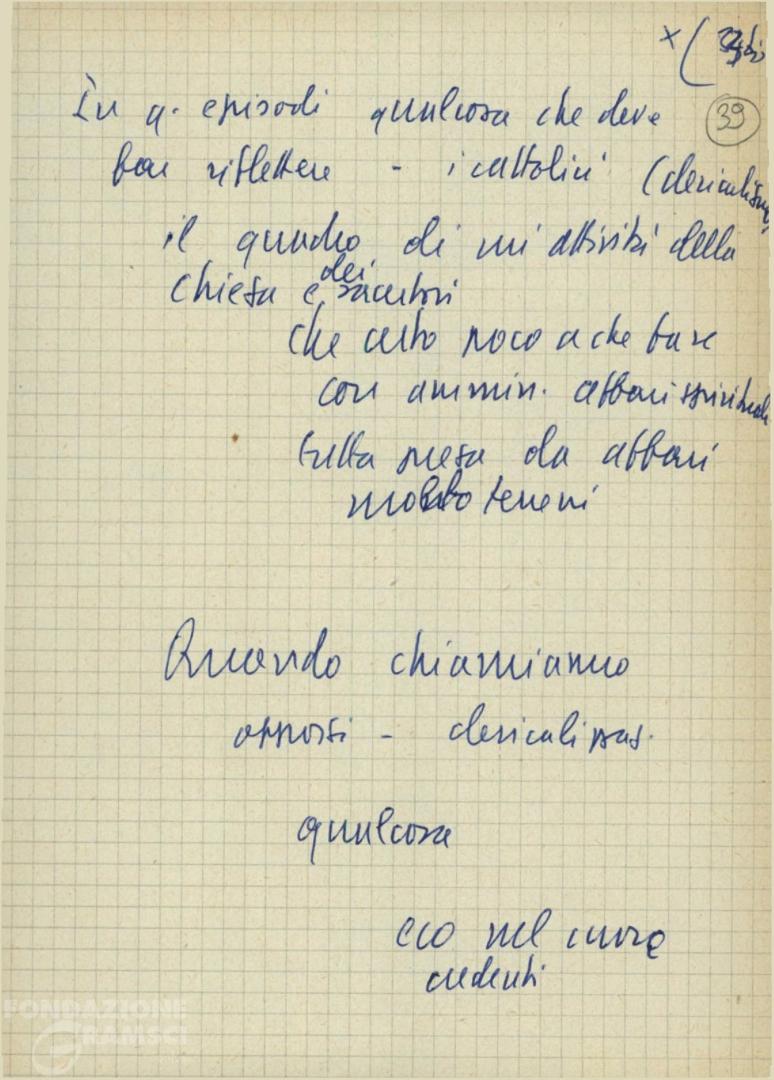 39
In q. episodi qualcosa che deve
far riflettere - i cattolici (clericalismo)
il quadro di un'attività della
dei
chiesa e sacerdoti
che certo poco a che fare
con ammin. affari spirituali
tutta presa da affari
molto terreni
Quando chiamiamo
opposti - clericalismo
qualcosa
eco nel cuore
credenti
FONDAZIONE
GRAMSCI